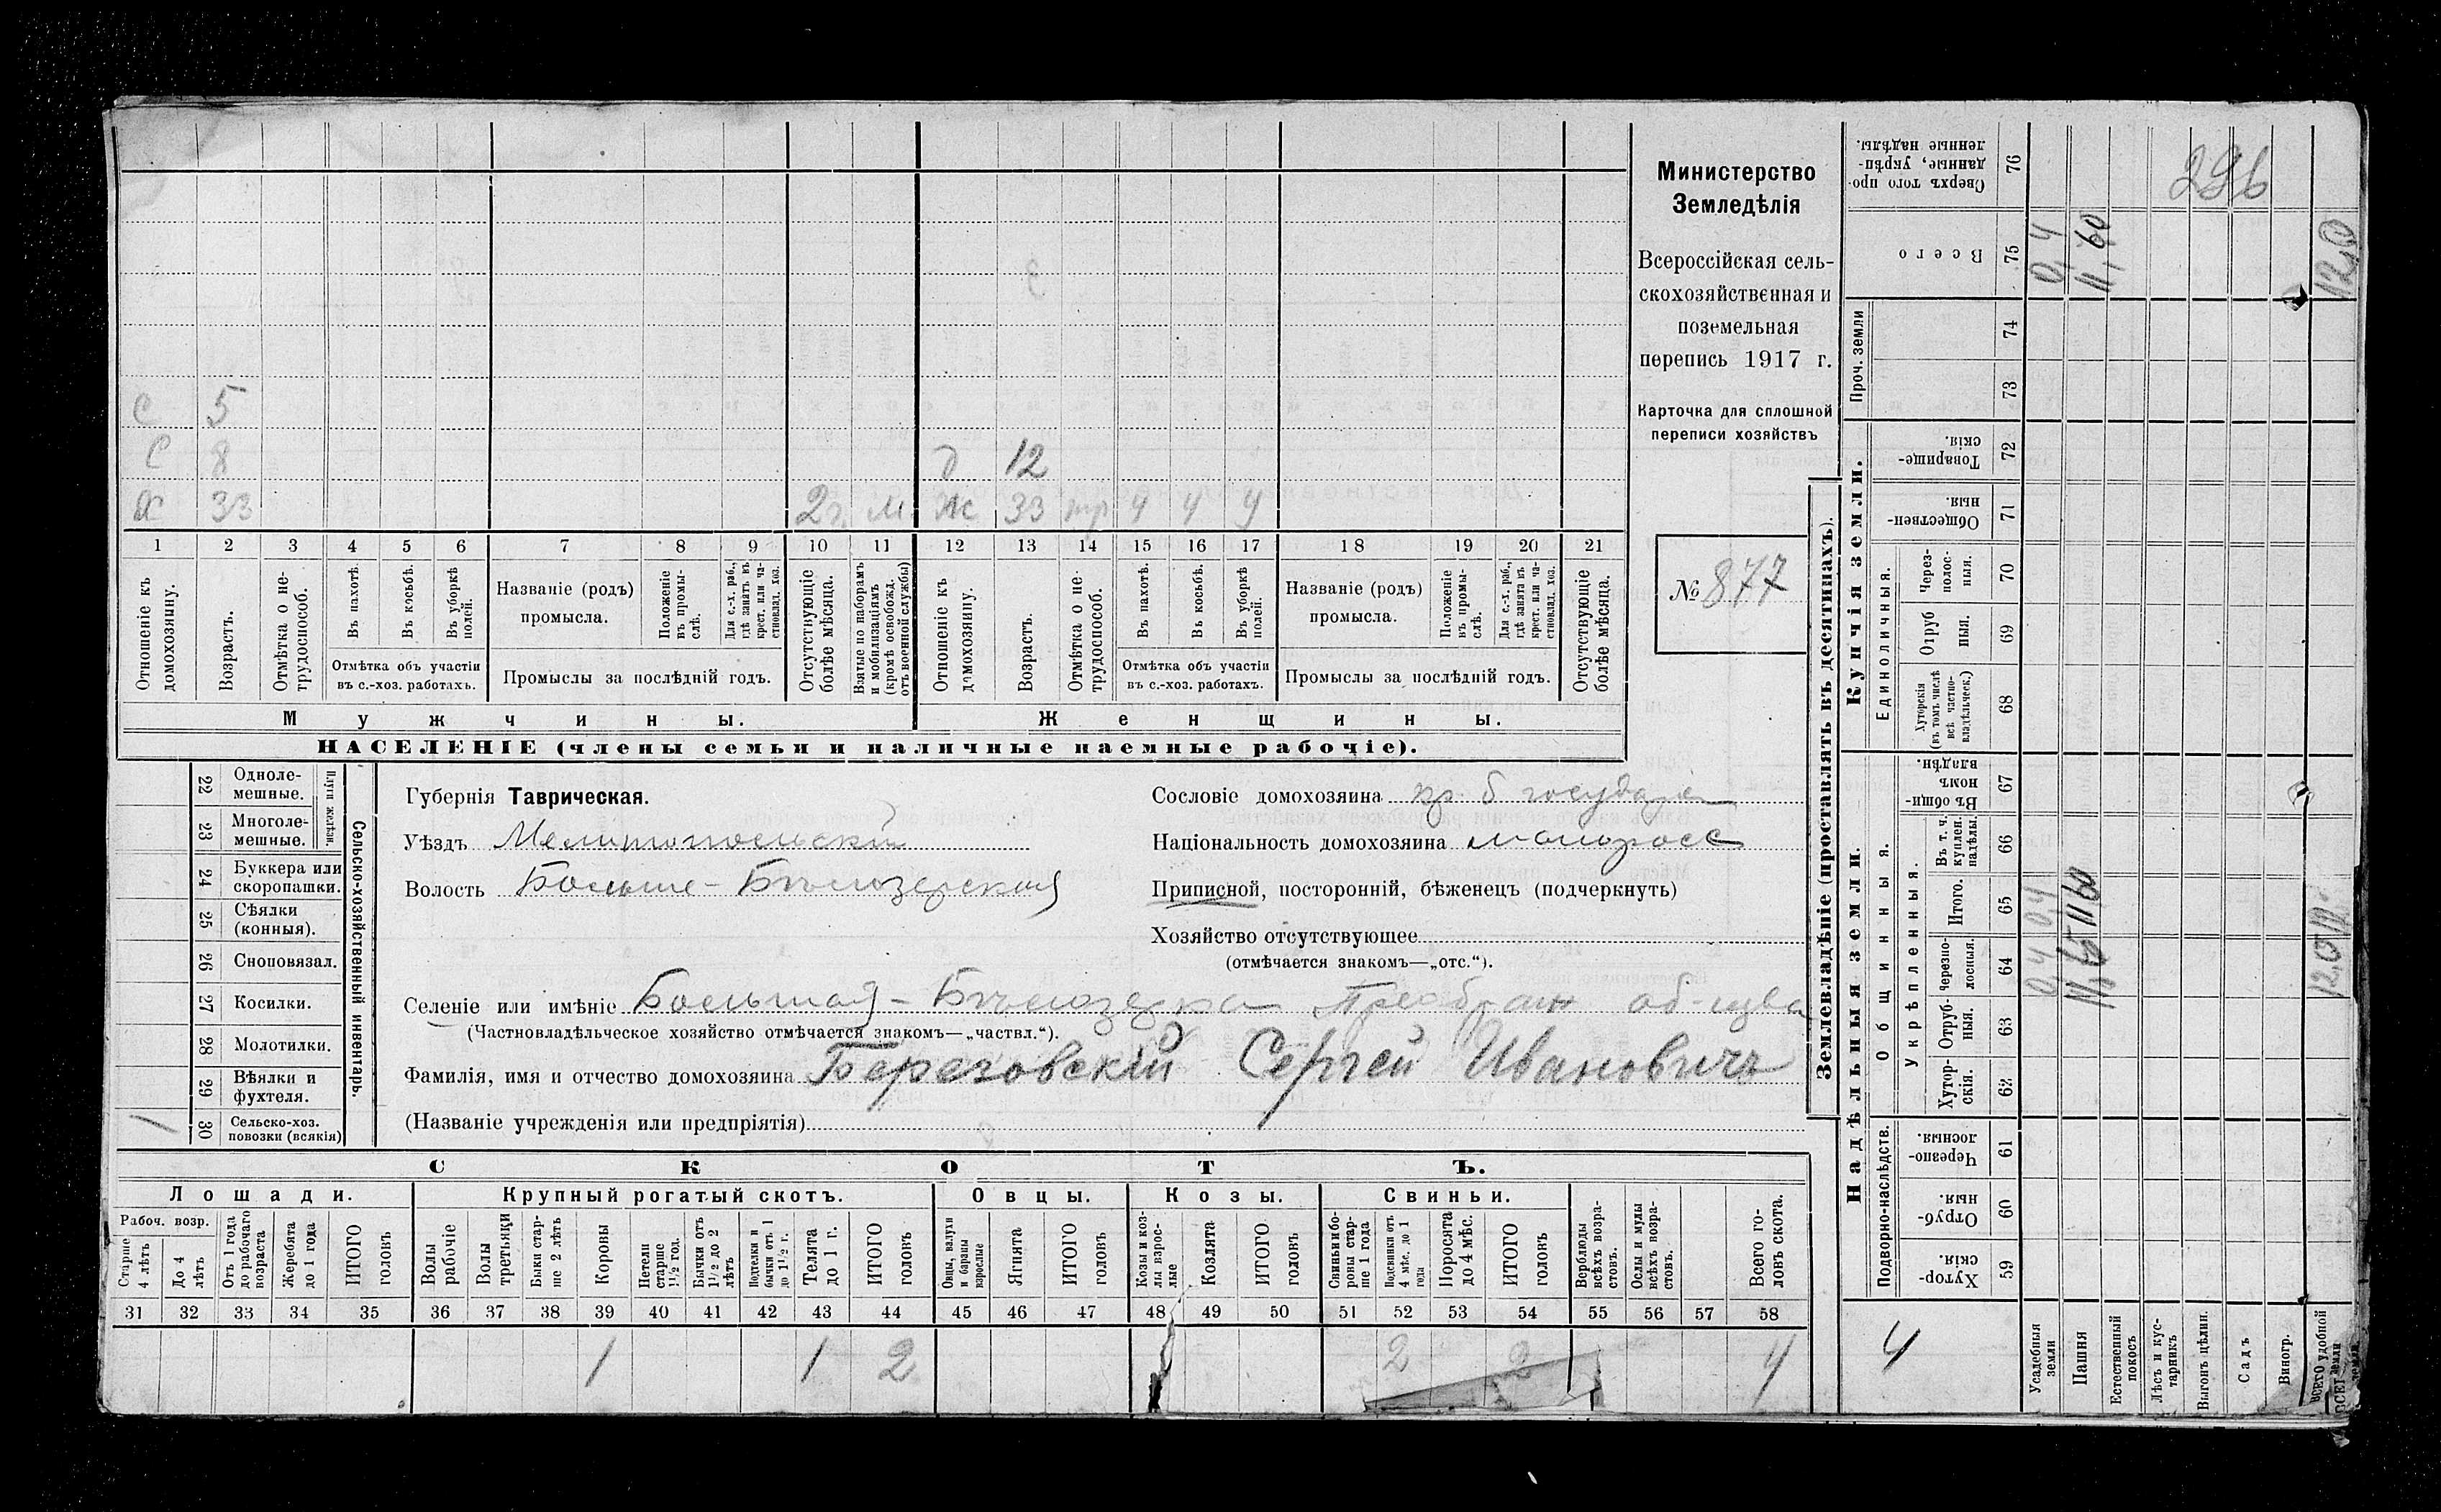 с 5
с 8 д 12
х 33 2 г. м ж 33 тр ч ч ч
1 2 3 4 5 6 7 8 9 10 11 12 13 14 15 16 17 18 19 20 21
Отношеніе къ домохозяину.
Возрастъ.
Отмѣтка о нетрудоспособ.
Въ пахотѣ.
Въ косьбѣ.
Въ уборкѣ полей.
Отмѣтка объ участіи
въ с.-хоз. работахъ.
Названіе (родъ)
промысла.
Положеніе въ промыслѣ.
Для с.-х. раб., гдѣ занятъ въ крест. или частновлад. хоз.
Промыслы за послѣдній годъ.
Отсутствующіе болѣе мѣсяца.
Взятые по наборамъ и мобилизаціямъ (кромѣ освобожд. отъ военной службы)
Отношеніе къ домохозяину.
Возрастъ.
Отмѣтка о нетрудоспособ.
Въ пахотѣ.
Въ косьбѣ.
Въ уборкѣ полей.
Отмѣтка объ участіи
въ с.-хоз. работахъ.
Названіе (родъ)
промысла.
Положеніе въ промыслѣ.
Для с.-х. раб., гдѣ занята въ крест. или частновлад. хоз.
Промыслы за послѣдній годъ.
Отсутствующіе болѣе мѣсяца.
Мужчины. Женщины.
НАСЕЛЕНІЕ (члены семьи и наличные наемные рабочіе).
Министерство
Земледѣлія
Всероссійская сель-
скохозяйственная и
поземельная
перепись 1917 г.
Карточка для сплошной
переписи хозяйствъ
№ 877
22 Однолемешные.
23 Многолемешные.
Плуги желѣзн.
24 Буккера или скоропашки.
25 Сѣялки (конныя).
26 Сноповязал.
27 Косилки.
28 Молотилки.
29 Вѣялки и фухтеля.
1 30 Сельско-хоз. повозки (всякія)
Сельско-хозяйственный инвентарь.
Губернія Таврическая.
Уѣздъ Мелитопольскій
Волость Больше-Бѣлозерская
Сословіе домохозяина кр. б государст
Національность домохозяина малоросс
Приписной, посторонній, бѣженецъ (подчеркнуть)
Хозяйство отсутствующее
(отмѣчается знакомъ—„отс.“).
Селеніе или имѣніе Большая-Бѣлозерка Преображ об-щва
(Частновладѣльческое хозяйство отмѣчается знакомъ—„частвл.“).
Фамилія, имя и отчество домохозяина Березовскій Сергей Ивановичъ
(Названіе учрежденія или предпріятія)
СКОТЪ.
Лошади. Крупный рогатый скотъ. Овцы. Козы. Свиньи.
Рабоч. возр.
Старше 4 лѣтъ
До 4 лѣтъ
Отъ 1 года до рабочаго возраста
Жеребята до 1 года
ИТОГО головъ
Волы рабочіе
Волы третьяки
Быки старше 2 лѣтъ
Коровы
Нетели старше 1½ год.
Бычки отъ 1½ до 2 лѣтъ
Подтелки и бычки отъ 1 до 1½ г.
Телята до 1 г.
ИТОГО головъ
Овцы, валухи и бараны взрослые
Ягнята
ИТОГО головъ
Козы и козлы взрослые
Козлята
ИТОГО головъ
Свиньи и боровы старше 1 года
Подсвинки отъ 4 мѣс. до 1 года
Поросята до 4 мѣс.
ИТОГО головъ
Верблюды всѣхъ возрастовъ.
Ослы и мулы всѣхъ возрастовъ.
Всего головъ скота.
31 32 33 34 35 36 37 38 39 40 41 42 43 44 45 46 47 48 49 50 51 52 53 54 55 56 57 58
1 1 2 2 2 4
Землевладѣніе (проставлять въ десятинахъ).
Сверхъ того проданные, укрѣпленные надѣлы. 76
296
Всего 75 0,4 11,60 12,0
Проч. земли
74
73
Купчія земли.
Товарищескія. 72
Общественныя. 71
Единоличныя.
Черезполосныя. 70
Отрубныя. 69
Хуторскія (въ томъ числѣ всѣ частновладѣльческ.) 68
Надѣльныя земли.
Общинныя.
Въ общинномъ владѣн. 67
Укрѣпленныя.
Въ т. ч. куплен. надѣлы. 66
Итого. 65 0,4 11,60 12,
Черезполосныя. 64 0,4 11,60 12,0
Отрубныя. 63
Хуторскія. 62
Подворно-наслѣдств.
Черезполосныя. 61
Отрубныя. 60
Хуторскія. 59
4
Усадебныя земли
Пашня
Естественный покосъ
Лѣсъ и кустарникъ
Выгонъ цѣлин.
Садъ
Виногр.
ВСЕГО удобной земли